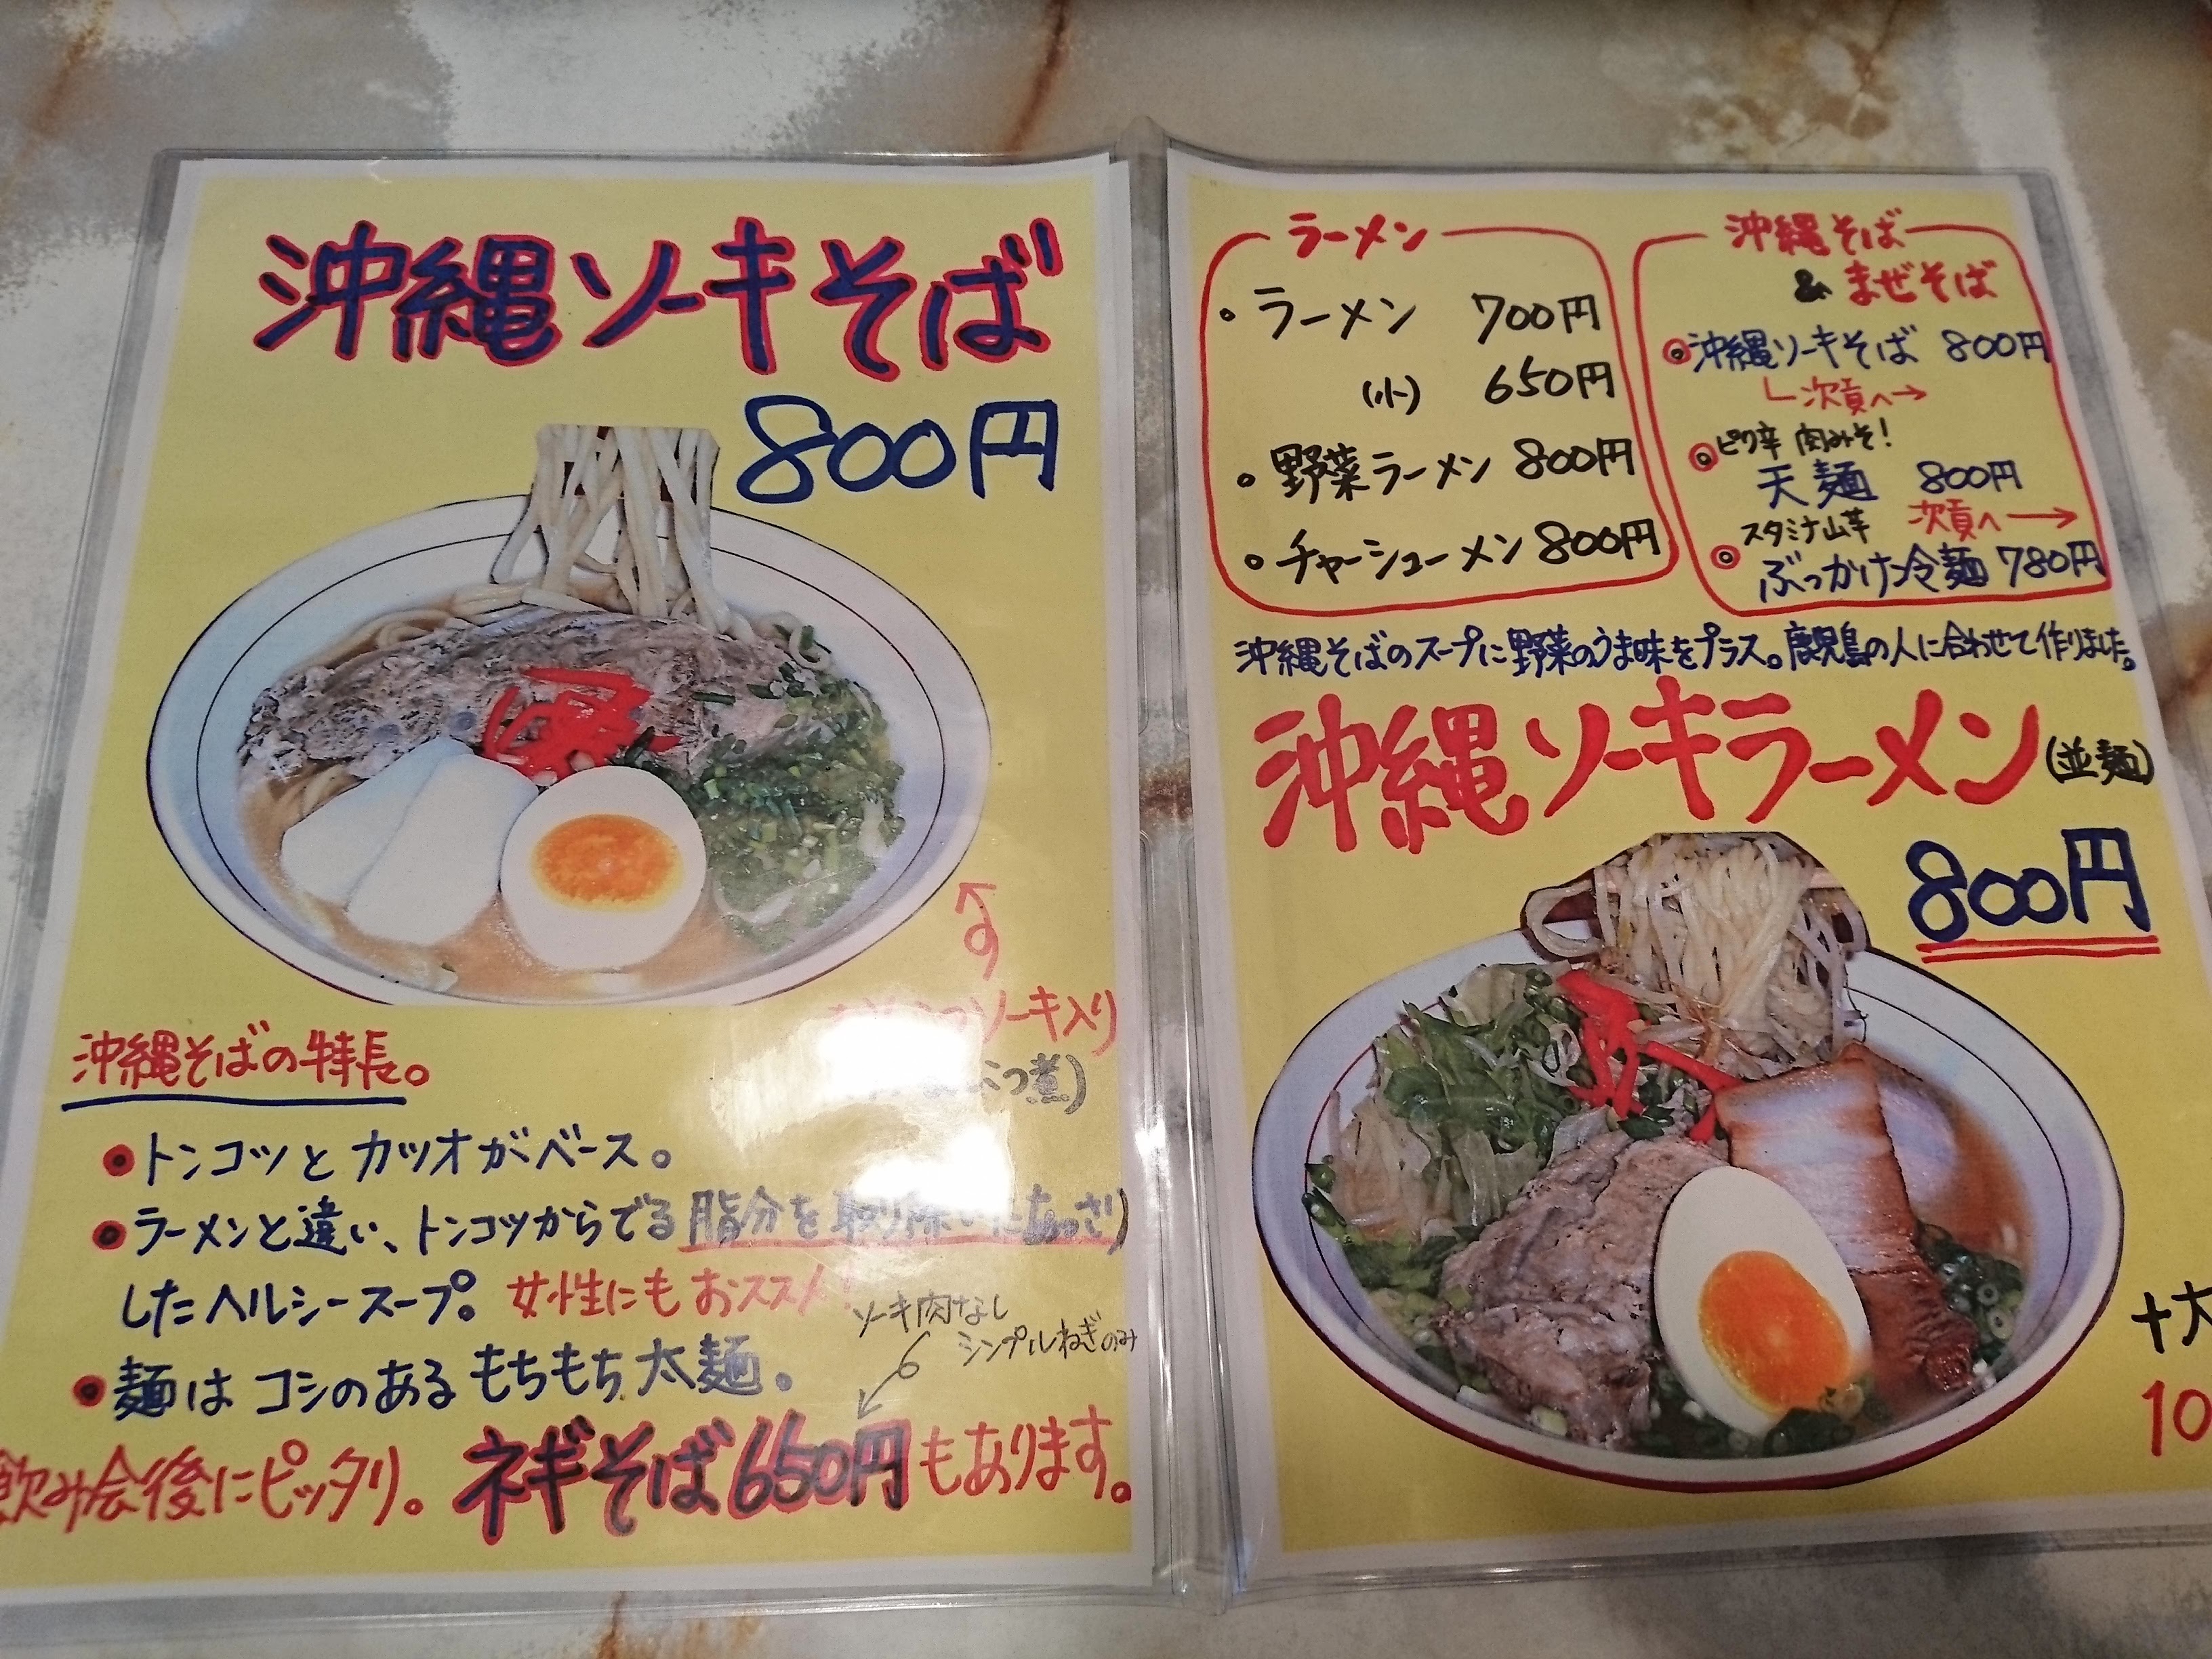 沖縄ソーキそば
800円
ソーキ入り
つ煮)
沖縄そばの特長。
トンコツとカツオがベース。
ラーメンと違い、トンコツからでる脂分を取り除いたあっさり
したヘルシースープ。女性にもおススメ!
麺はコシのあるもちもち太麺。
ソーキ肉なし
シンプルねぎのみ
飲み会後にピッタリ。ネギそば650円もあります。
ラーメン
・ラーメン 700円
(小) 650円
・野菜ラーメン 800円
・チャーシューメン 800円
沖縄そば
& まぜそば
沖縄ソーキそば 800円
次頁へ→
ピリ辛 肉みそ!
天麺 800円
次頁へ→
スタミナ山芋
ぶっかけ冷麺 780円
沖縄そばのスープに野菜のうま味をプラス。鹿児島の人に合わせて作りました。
沖縄ソーキラーメン(並麺)
800円
+大
10